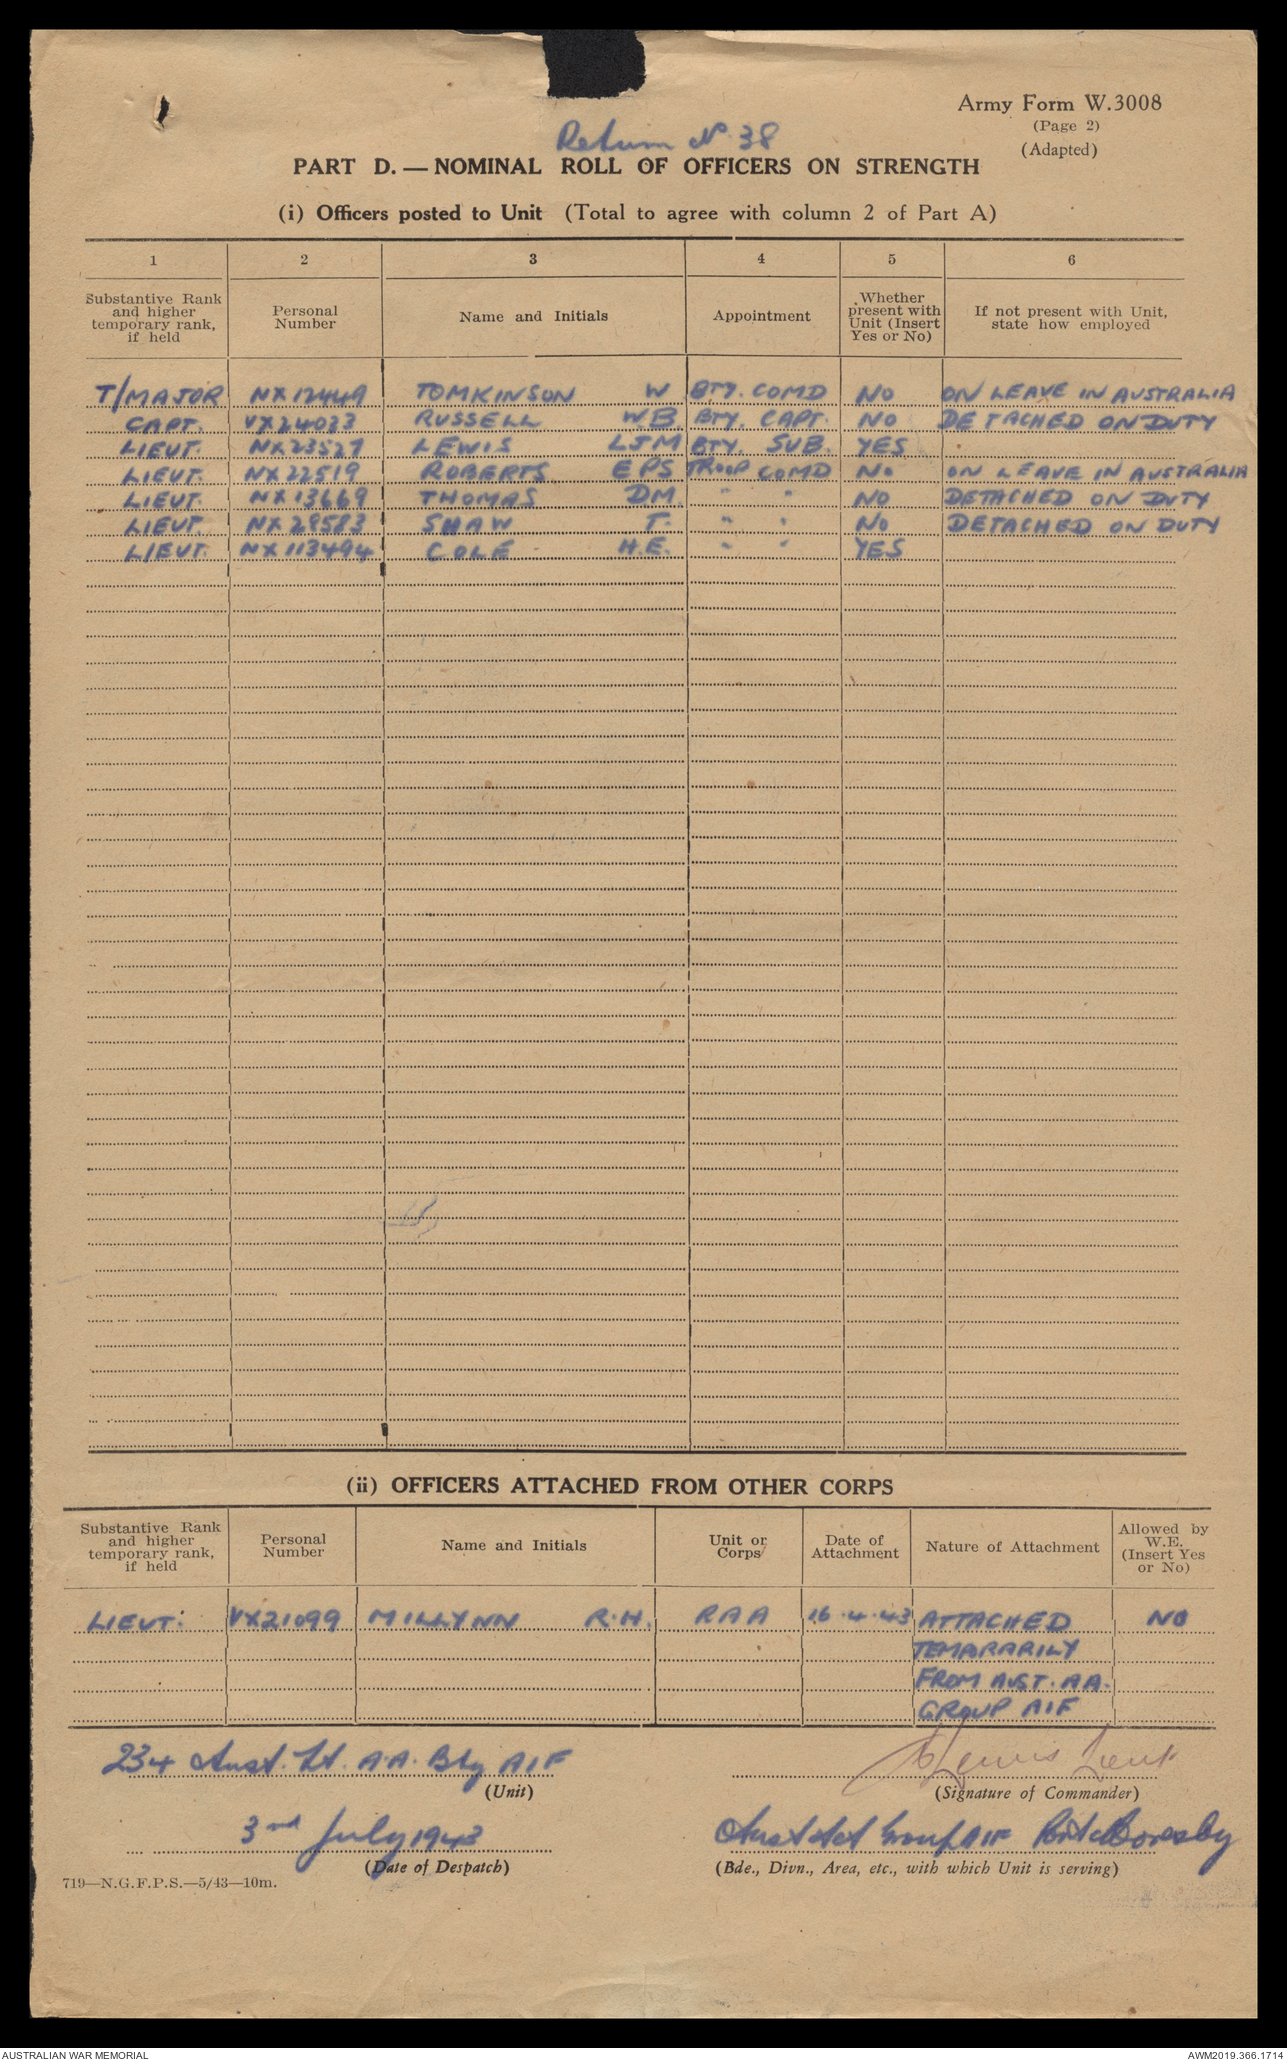 Army Form W.3008
(Page 2)
(Adapted)
Return No. 38
PART D.—NOMINAL ROLL OF OFFICERS ON STRENGTH
(i) Officers posted to Unit (Total to agree with column 2 of Part A)
1 2 3 4 5 6
Substantive Rank and higher temporary rank, if held Personal Number Name and Initials Appointment Whether present with Unit (Insert Yes or No) If not present with Unit, state how employed
T/MAJOR NX12449 TOMKINSON W BTY. COMD NO ON LEAVE IN AUSTRALIA
CAPT. VX24033 RUSSELL W.B. BTY. CAPT. NO DETACHED ON DUTY
LIEUT. NX23527 LEWIS LJM BTY. SUB. YES
LIEUT. NX22519 ROBERTS EPS TROOP COMD NO ON LEAVE IN AUSTRALIA
LIEUT. NX13669 THOMAS DM. " " NO DETACHED ON DUTY
LIEUT. NX29583 SHAW T. " " NO DETACHED ON DUTY
LIEUT. NX113494 COLE H.E. " " YES
(ii) OFFICERS ATTACHED FROM OTHER CORPS
Substantive Rank and higher temporary rank, if held Personal Number Name and Initials Unit or Corps Date of Attachment Nature of Attachment Allowed by W.E. (Insert Yes or No)
LIEUT. VX21099 MILLYNN R.H. RAA 16.4.43 ATTACHED NO
TEMPORARILY
FROM AUST. AA.
GROUP AIF
234 Aust. Lt. A.A. Bty AIF Lewis Lieut
(Unit) (Signature of Commander)
3rd July 1943 Aust Group AIF Port Moresby
(Date of Despatch) (Bde., Divn., Area, etc., with which Unit is serving)
719—N.G.F.P.S.—5/43—10m.
AUSTRALIAN WAR MEMORIAL AWM2019.366.1714